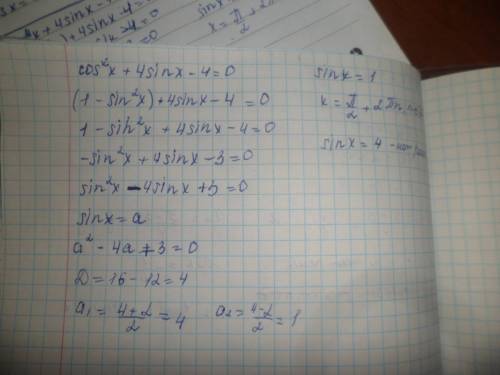 cos²x + 4sinx - 4 = 0
(1 - sin²x) + 4sinx - 4 = 0
1 - sin²x + 4sinx - 4 = 0
-sin²x + 4sinx - 3 = 0
sin²x - 4sinx + 3 = 0
sinx = a
a² - 4a + 3 = 0
D = 16 - 12 = 4
a₁ = (4+2)/2 = 4 a₂ = (4-2)/2 = 1
sinx = 1
x = π/2 + 2πn,
sinx = 4 -